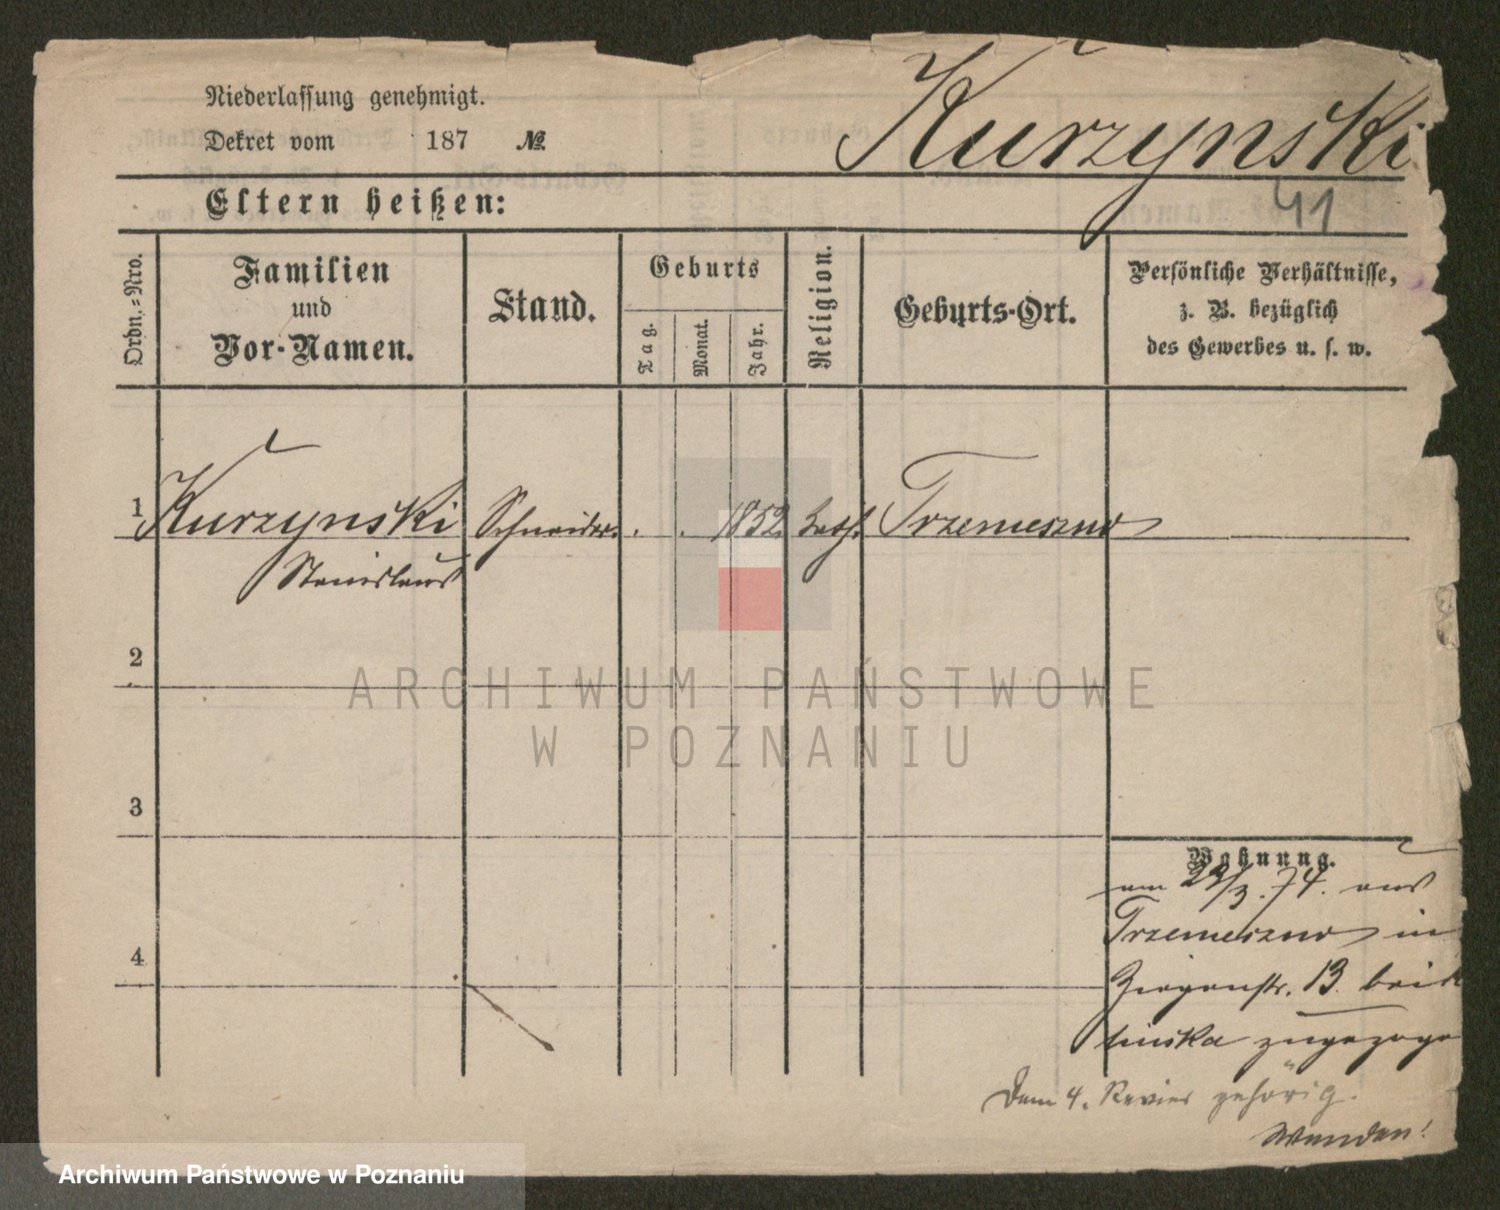 Niederlassung genehmigt.
Dekret vom 187 №
Kurzynski
41
Eltern heißen:
Ordn.-Nro.
Familien
und
Vor-Namen.
Stand.
Geburts
Tag.
Monat.
Jahr.
Religion.
Geburts-Ort.
Persönliche Verhältnisse,
z. B. bezüglich
des Gewerbes u. s. w.
1 Kurzynski Schneider. . . 1852 kath. Trzemeszno
Stanislaus
2
ARCHIWUM PAŃSTWOWE
W POZNANIU
3
Wohnung.
am /3. 74. aus
Trzemeszno in
Ziegenstr. 13. bei
zugezoge
4
Dem 4. Revier gehörig.
Wenden!
Archiwum Państwowe w Poznaniu